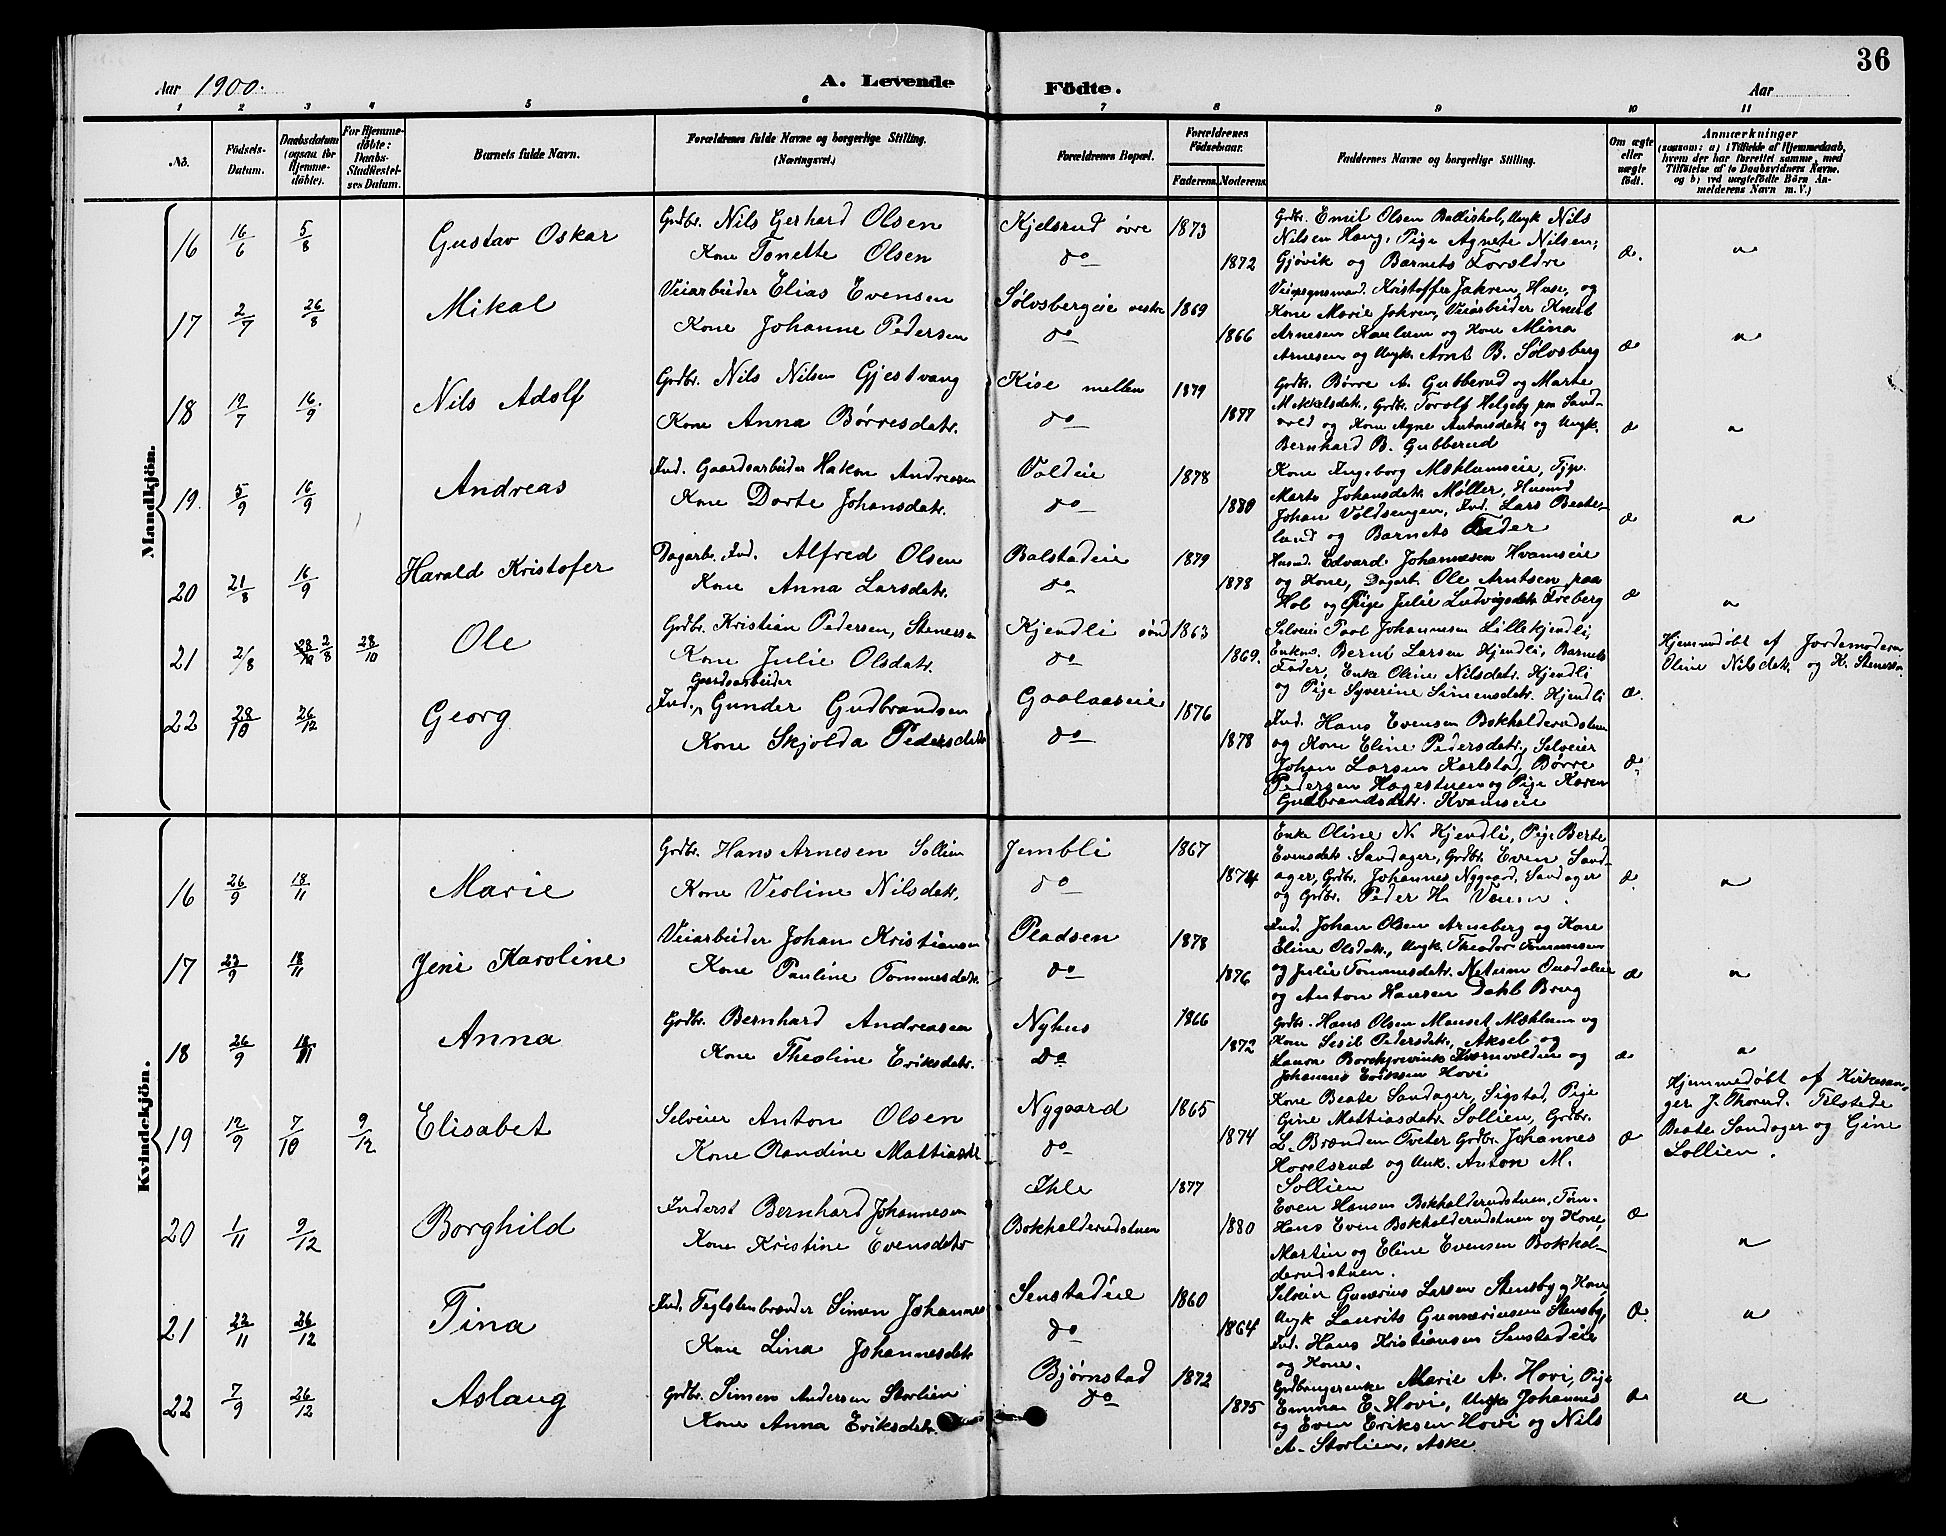 36
Aar 1900.
A. Levende Födte.
Aar
1 2 3 4 5 6 7 8 9 10 11
No.
Födsels-Datum.
Daabsdatum (ogsaa for Hjemme-döbte).
For Hjemme-döbte: Daabs-Stadfæstel-ses Datum.
Barnets fulde Navn.
Forældrenes fulde Navne og borgerlige Stilling. (Næringsvei.)
Forældrenes Bopæl.
Forældrenes Födselsaar.
Faderens. Moderens.
Faddernes Navne og borgerlige Stilling.
Om ægte eller uægte födt.
Anmærkninger
(saasom: a) i Tilfælde af Hjemmedaab, hvem der har forrettet samme, med Tilföielse af to Daabsvidners Navne, og b) ved uægtefödte Börn An-melderens Navn m. V.)
Mandkjön.
16 16/6 5/8 Gustav Oskar
Grdbr. Nils Gerhard Olsen
Kone Tonette Olsen
Kjelsrud övre
do
1873 1872
Grdbr. Emil Olsen Balliskol, Ungk Nils
Nilsen Haug, Pige Agnete Nilsen,
Gjøvik og Barnets Forældre
æ. "
17 2/7 26/8 Mikal
Veiarbeider Elias Evensen
Kone Johanne Pedersen
Sølvsbergeie vestre
do
1869 1866
Kristoffer Jahren, Hase, og
Kone Marie Jahren, Veiarbeider Knut
Arnesen Kaulum og Kone Mina
Arnesen og Ungk. Arnt B. Sølvsberg
æ "
18 19/7 16/9 Nils Adolf
Grdbr. Nils Nilsen Gjestvang
Kone Anna Børresdatr.
Kise mellem
do
1879 1877
Grdbr. Børre A. Gubberud og Marte
Mikkelsdatr., Grdbr. Torolf Helgeby paa Sand-
vold og Kone Agne Antonsdatr og Ungk.
Bernhard B. Gubberud
æ "
19. 5/9 16/9 Andreas
Ind. Gaardsarbeider Hakon Andreasen
Kone Dorte Johansdatr.
Voldeie
do
1878 1880
Kone Ingeborg Mæhlumseie, Tjp.
Marte Johansdatr. Møller, Husmd
Johan Voldsengen, Ind. Lars Beate-
land og Barnets Fader
æ "
20 21/8 16/9 Harald Kristofer
Dagarb. Ind. Alfred Olsen
Kone Anna Larsdatr.
Balstadeie
do
1879 1878
Husmd. Edvard Johannesen Hvamseie
og Kone, Dagarb. Ole Arntsen paa
Hol og Pige Julie Ludvigsdatr Freberg
æ "
21 2/8 28/10 2/8 28/10 Ole
Grdbr. Kristian Pedersen, Stenersen
Kone Julie Olsdatr.
Kjendli sønd
do
1863 1869.
Selveier Paul Johannesen Lillekjendli,
Enkem. Bernt Larsen Hjendli, Barnets
Fader, Enke Oline Nilsdatr. Hjendli
og Pige Syverine Simensdatr. Hjendli
æ
Hjemmedøbt af Jordemoderen
Oline Nilsdatr. og K. Stenersen
22 28/10 26/12 Georg
Gaardsarbeider
Ind. Gunder Gudbrandsen
Kone Skjolda Pedersdatr
Gaalaaseie
do
1876 1878
Ind. Hans Evensen Bokhalderudstuen
og Kone Eline Pedersdatr., Selveier
Johan Larsen Karlstad, Børre
Pedersen Hagestuen og Pige Karen
Gudbrandsdatr. Kvamseie
æ
Kvindekjön.
16 26/9 18/11 Marie
Grdbr. Hans Arnesen Sollien
Kone Violine Nilsdatr.
Jembli
do
1867 1874
Enke Oline N. Hjendli, Pige Berte
Evensdatr. Sandager, Grdbr. Even Sand-
ager, Grdbr. Johannes Nygaard, Sandager
og Grdbr. Peder H.
æ "
17 23/9 18/11 Jeni Karoline
Veiarbeider Johan Kristiansen
Kone Pauline Tommesdatr.
Pladsen
do
1878 1876
Ind. Johan Olsen Arneberg og Kone
Eline Olsdatr., Ungk. Theodor Tommesen
og Julie Tommesdatr.
og Anton Hansen Dahl Brug
æ "
18 26/9 18/11 Anna
Grdbr. Bernhard Andreasen
Kone Theoline Eriksdatr.
Nyhus
do
1866 1872
Grdbr. Hans Olsen Manset, Mæhlum og
Kone Sesil Pedersdatr., Aksel og
Laura Borchgrevink Kværnvolden og
Johannes Eriksen Hovi
æ "
19 12/9 7/10 9/12 Elisabet
Selveier Anton Olsen
Kone Randine Mattiasdtr
Nygaard
do
1865 1874
Kone Beate Sandager, Sigstad, Pige
Gine Mattiasdatr. Sollien, Grdbr.
L. Brænden Øveter Grdbr. Johannes
Hovelsrud og Unk. Anton M.
Sollien
æ
Hjemmedøbt af Kirkesan-
ger J. Thorud. Tilstede
Beate Sandager og Gine
Sollien.
20 1/11 9/12 Borghild
Inderst Bernhard Johannesen
Kone Kristine Evensdatr
Ihle
Bokhalderudstuen
1877 1880
Even Hansen Bokhalderudstuen, Tøm-
Hans Even Bokhalderudstuen og Kone,
Martin og Eline Evensen Bokhal-
derudstuen.
æ "
21 22/11 26/12 Tina
Ind. Teglstenbrænder Simen Johannes
Kone Lina Johannesdatr
Senstadeie
do
1860 1864
Selveier Gunerius Larsen Stensby og Kone,
Ungk Laurits Gunneriussen Stensby,
Ind. Hans Kristiansen Senstadeie
og Kone.
æ. "
22 7/9 26/12 Aslaug
Grdbr. Simen Andersen Storlien
Kone Anna Eriksdatr.
Bjørnstad
do
1872 1875
Grdbrugerenke Marie A. Hovi, Pige
Emma E. Hovi, Ungk Johannes
og Even Eriksen Hovi og Nils
A. Storlien, Aske
æ "